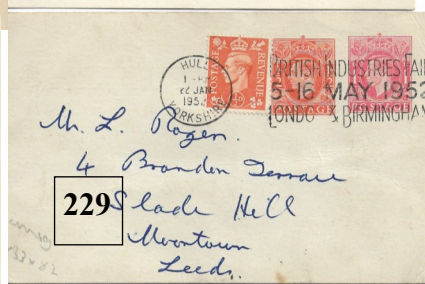 HULL
22 JAN
1952
YORKSHIRE
POSTAGE REVENUE
BRITISH INDUSTRIES FAIR
5-16 MAY 1952
LONDON & BIRMINGHAM
Mr. L. Rogen.
4 Brandon Terrace
229
Slade Hill
Moortown
Leeds.